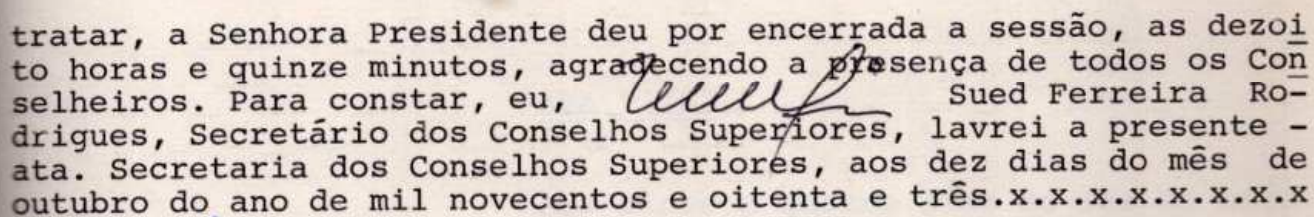 tratar, a Senhora Presidente deu por encerrada a sessão, as dezoi
to horas e quinze minutos, agradecendo a presença de todos os Con
selheiros. Para constar, eu, Sued Ferreira Ro-
drigues, Secretário dos Conselhos Superiores, lavrei a presente -
ata. Secretaria dos Conselhos Superiores, aos dez dias do mês de
outubro do ano de mil novecentos e oitenta e três.x.x.x.x.x.x.x.x